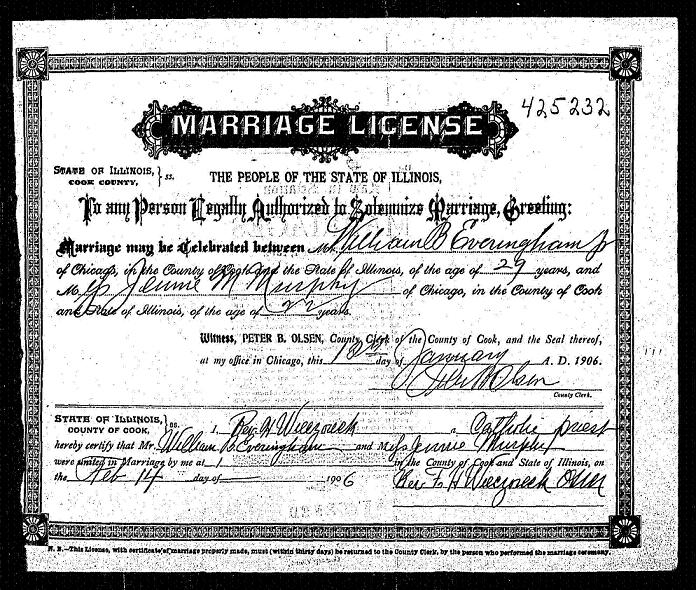 425232
MARRIAGE LICENSE
STATE OF ILLINOIS, } ss.
COOK COUNTY,
THE PEOPLE OF THE STATE OF ILLINOIS,
To any Person Legally Authorized to Solemnize Marriage, Greeting:
Marriage may be Celebrated between Mr. William B Everingham Jr
of Chicago, in the County of Cook and the State of Illinois, of the age of 29 years, and
M Jennie M Murphy of Chicago, in the County of Cook
and State of Illinois, of the age of 22 years.
Witness, PETER B. OLSEN, County Clerk of the County of Cook, and the Seal thereof,
at my office in Chicago, this day of January A. D. 1906.
Peter B Olsen
County Clerk.
STATE OF ILLINOIS, } ss.
COUNTY OF COOK,
I, Rev. H Wieczorek a Catholic priest
hereby certify that Mr. William B. Everingham and Miss Jennie Murphy
were united in Marriage by me at in the County of Cook and State of Illinois, on
the Feb 14 day of 1906
Rev. F. H Wieczorek
N. B.—This License, with certificate of marriage properly made, must (within thirty days) be returned to the County Clerk, by the person who performed the marriage ceremony.